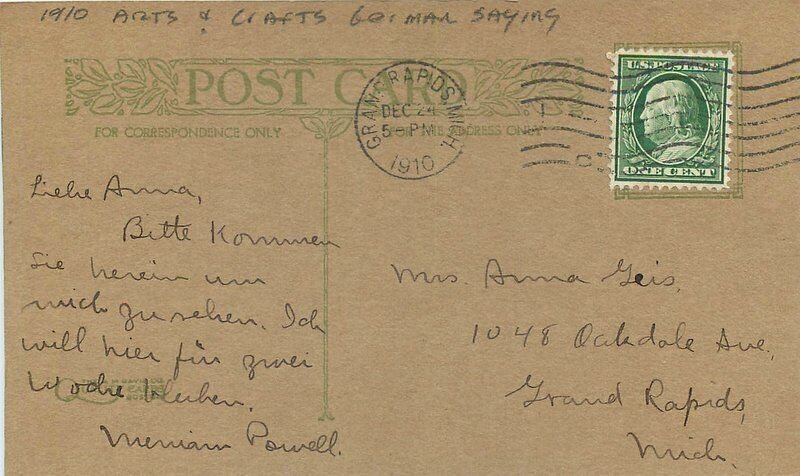 1910 ARTS & CRAFTS German SAYING
POST CARD
FOR CORRESPONDENCE ONLY
FOR THE ADDRESS ONLY
GRAND RAPIDS, MICH.
DEC 24
5 PM
1910
U.S. POSTAGE
ONE CENT
Liebe Anna,
Bitte Kommen
Sie herein um
mich zu sehen. Ich
will hier für zwei
Woche bleiben.
Merriam Powell.
Mrs. Anna Geis,
1048 Oakdale Ave,
Grand Rapids,
Mich.